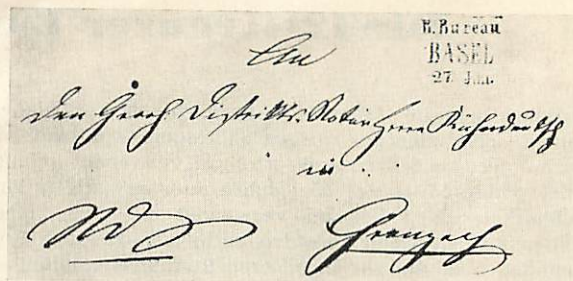 B. Bureau
BASEL
27 Jan.
An
den Großh. Distrikts-Notar Herrn
in
Grenzach